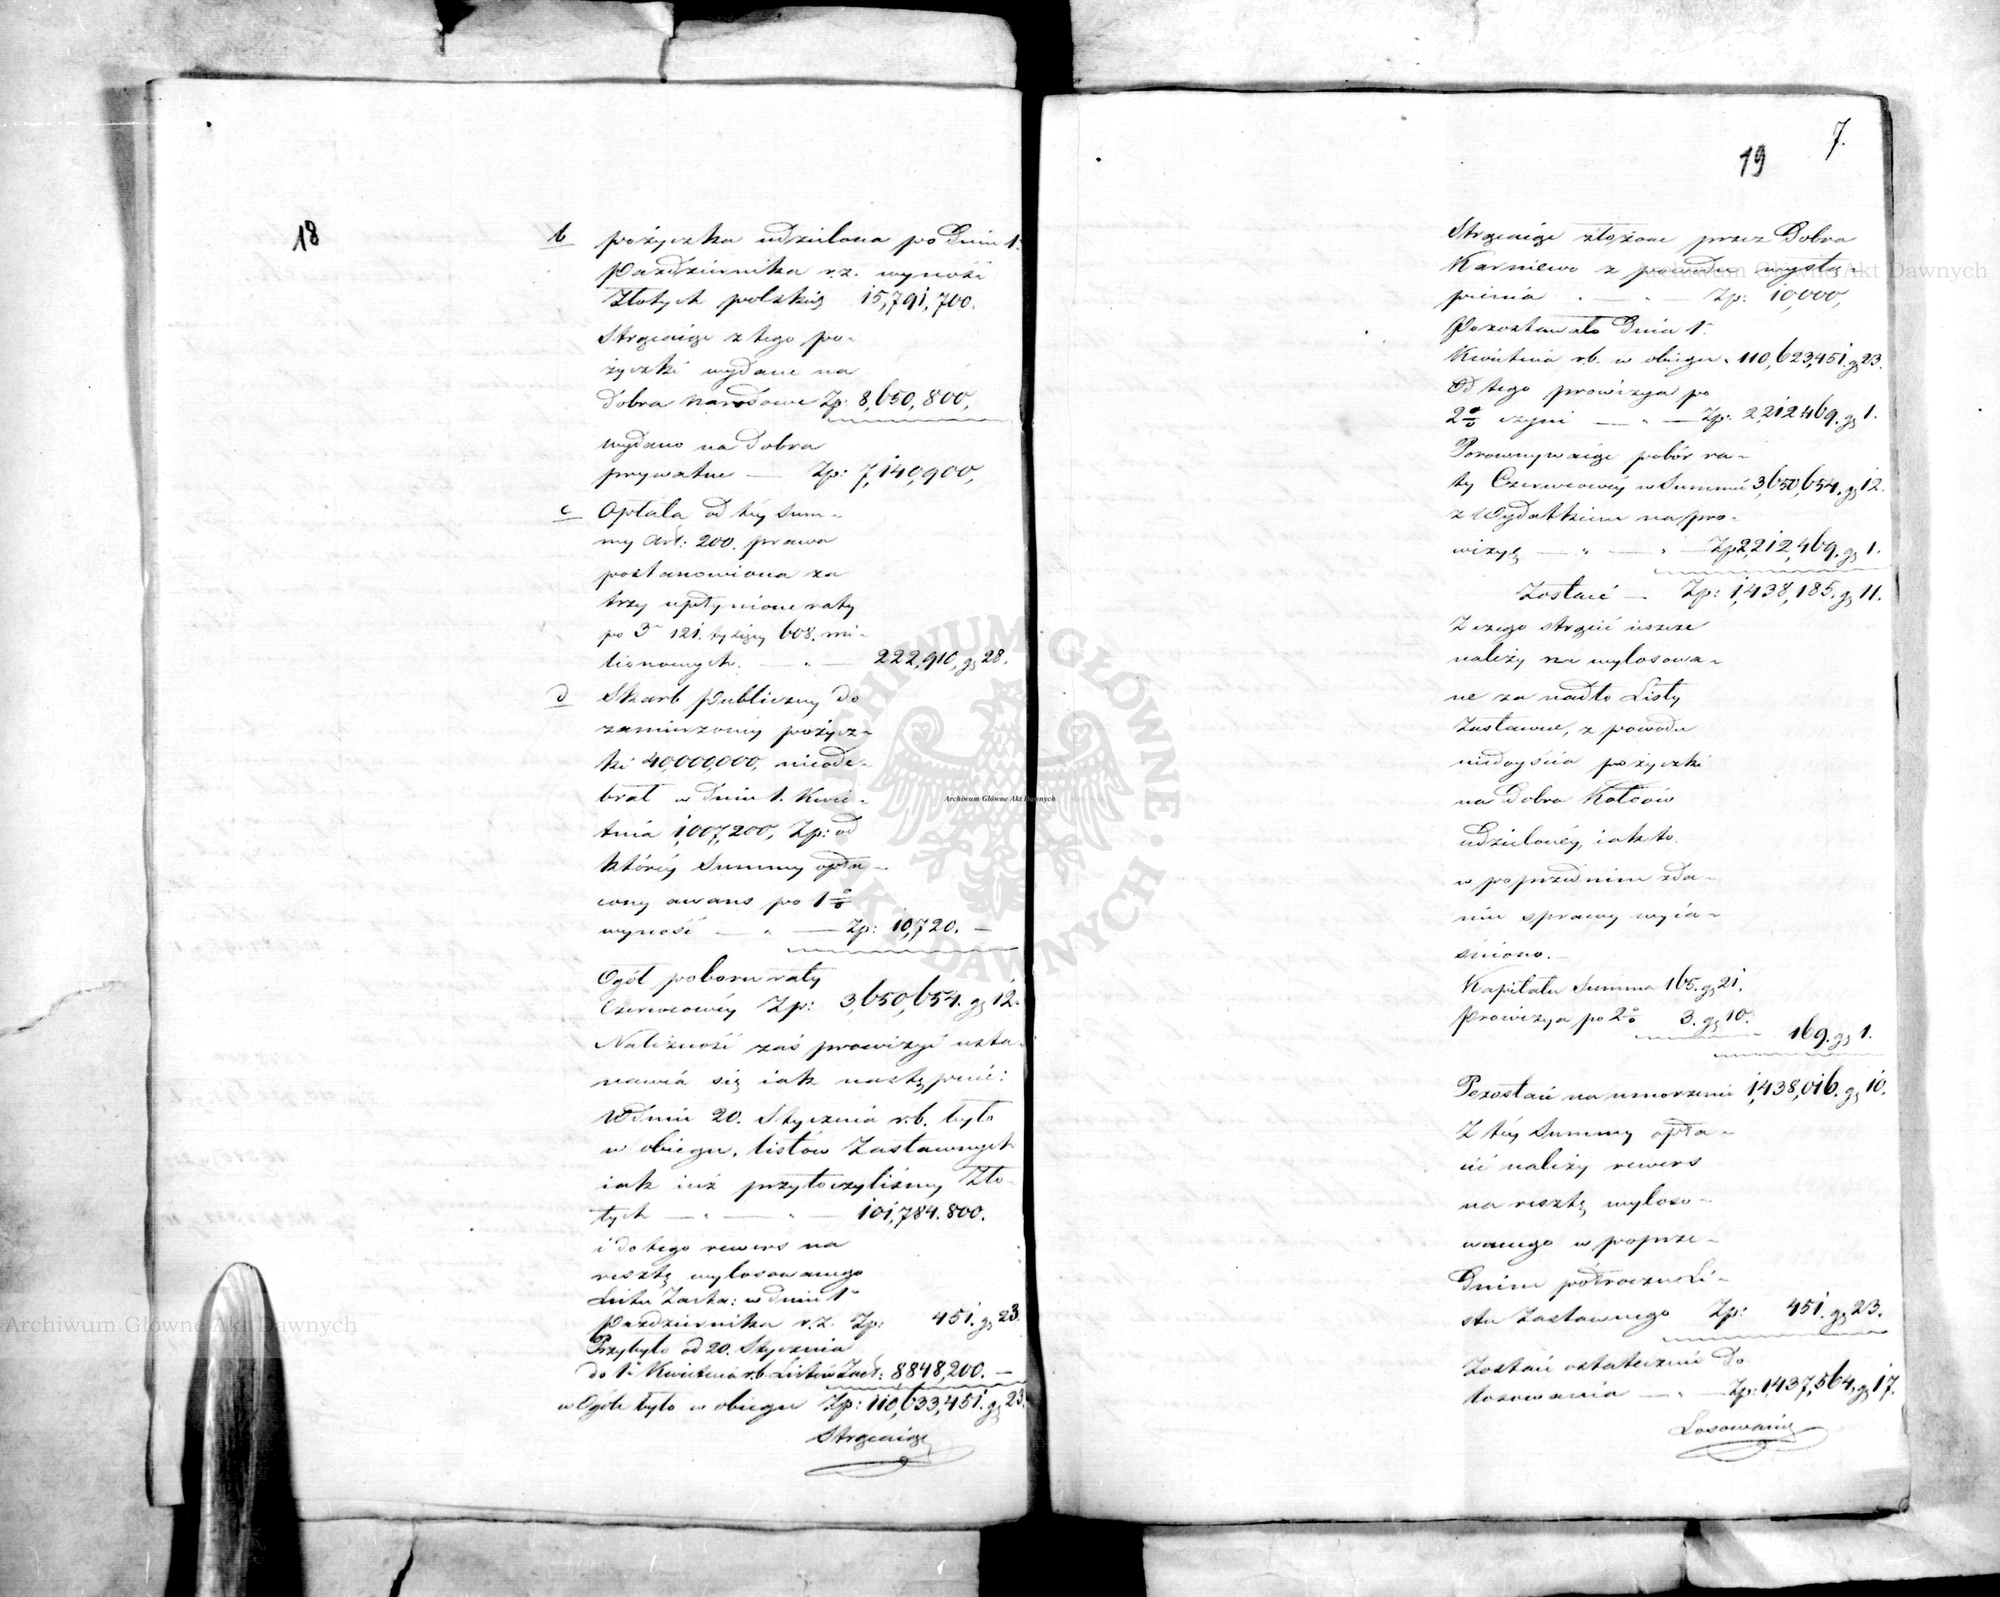 18
b pożyczka udzielona po Dniu 1.
Października r.z. wynosi
Złotych polskich 15,791,700.
Strąciąc z tego po-
życzki wydane na
Dobra Narodowe Zp: 8,650,800,
wydano na Dobra
prywatne — Zp: 7,140,900,
c Opłata od téy Sum-
my Art: 200. prawa
postanowiona za
trzy upłynione raty
po 3 121. tysięcy 608. mi-
lionowych. — " — 222,910, gr 28.
d Skarb Publiczny do
zamierzonéy pożycz-
ki 40,000,000, nieode-
brał w Dniu 1. Kwie-
tnia 1,007,200, Zp: od
któréy Summy opła-
cony awans po 1 %
wynosi — " — Zp: 10,720. —
Ogół poboru raty
Czerwcowéy Zp: 3,650,654. gr 12.
Należność zaś prowizyi usta-
nawia się iak następuie:
W Dniu 20. Stycznia r.b. było
w obiegu, listów Zastawnych
iak iuż przytoczyliśmy Zło-
tych — " — " — 101,784.800.
i do tego rewers na
resztę wylosowanego
Listu Zasta: w dniu 1o
Października r.z. Zp: 451. gr 23.
Przybyło od 20. Stycznia
do 1o Kwietnia r.b. Listów Zast: 8,848,200. —
w Ogóle było w obiegu Zp: 110,633,451. gr 23.
Strąciąc
7.
19
Strąciąc złożone przez Dobra
Karniewo z powodu wystą-
pienia " — Zp: 10,000,
Pozostawało Dnia 1o
Kwietnia r.b. w obiegu " 110,623,451. gr 23.
Od tego prowizya po
2 % czyni — " — Zp: 2,212,469. gr 1.
Porownywaiąc pobór ra-
ty Czerwcowéy w Summie 3,650,654. gr 12.
z Wydatkiem na pro-
wizyę — " — " — Zp: 2,212,469. gr 1.
Zostaie — Zp: 1,438,185. gr 11.
Z czego strącić ieszcze
należy na wylosowa-
ne za nadto Listy
Zastawne, z powodu
niedoyścia pożyczki
na Dobra
udzielonéy, iak to
w poprzednim zda-
niu sprawy wyia-
śniono. —
Kapitału Summa 165. gr 21.
Prowizya po 2 % 3. gr 10.
169. gr 1.
Pozostaie na umorzenie 1,438,016. gr 10.
Z téy Summy opła-
cić należy rewers
na resztę wyloso-
wanego w poprze-
dnim półroczu Li-
stu Zastawnego Zp: 451. gr 23.
Zostaie ostatecznie do
losowania — " — Zp: 1,437,564, gr 17.
Losowanie
Archiwum Główne Akt Dawnych
Archiwum Główne Akt Dawnych
Archiwum Główne Akt Dawnych
ARCHIWUM GŁÓWNE AKT DAWNYCH